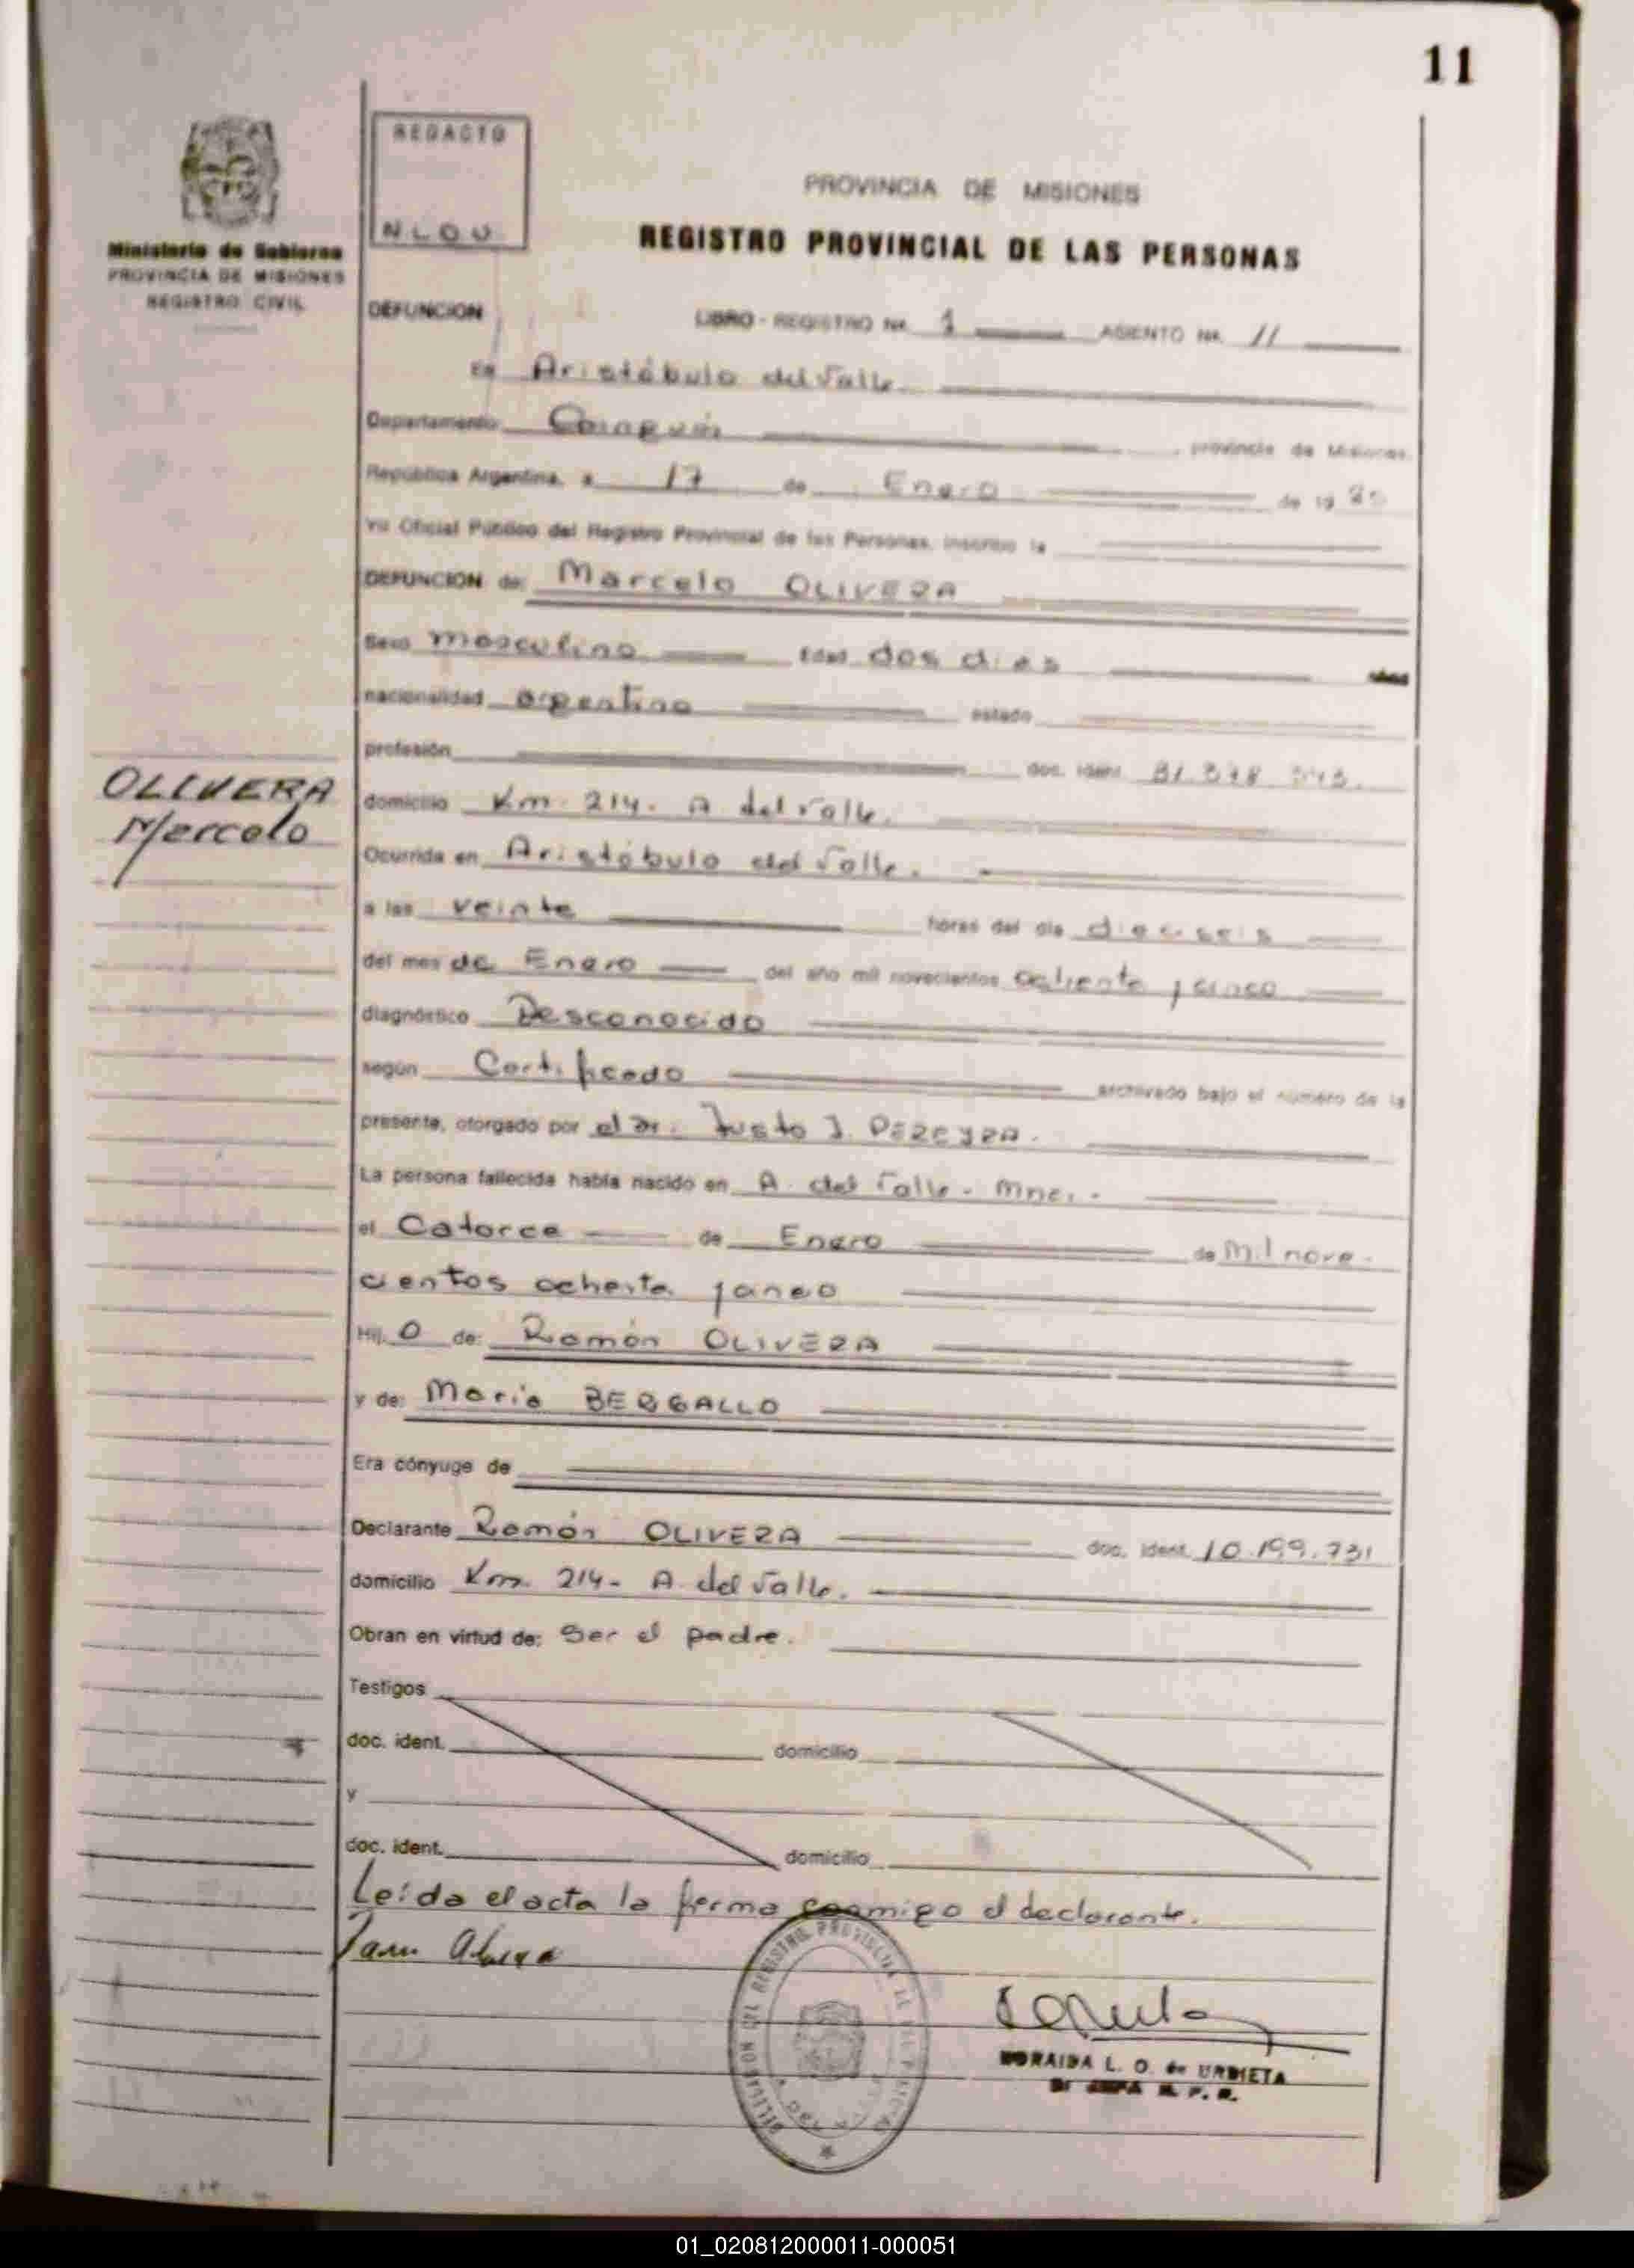 11
REDACTO
N L O U
Ministerio de Gobierno
PROVINCIA DE MISIONES
REGISTRO CIVIL
PROVINCIA DE MISIONES
REGISTRO PROVINCIAL DE LAS PERSONAS
DEFUNCION LIBRO - REGISTRO Nº 1 ASIENTO Nº 11
En Aristóbulo del Valle
Departamento Cainguás provincia de Misiones,
República Argentina, a 17 de Enero de 19
Yo Oficial Público del Registro Provincial de las Personas, inscribo la
DEFUNCION de: Marcelo OLIVERA
Sexo masculino Edad dos días años
nacionalidad argentina estado
profesión doc. ident.
OLIVERA
Marcelo
domicilio Km. 214. A del Valle.
Ocurrida en Aristóbulo del Valle.
a las veinte horas del día dieciseis
del mes de Enero del año mil novecientos ochenta y cinco
diagnóstico Desconocido
según Certificado archivado bajo el número de la
presente, otorgado por el Dr. Justo J. PEREYRA.
La persona fallecida había nacido en A. del Valle - Mnes. -
el Catorce de Enero de Mil nove-
cientos ochenta y cinco
Hij o de: Ramón OLIVERA
y de: María BERGALLO
Era cónyuge de
Declarante Ramón OLIVERA doc. ident. 10.199.731
domicilio Km. 214- A. del Valle.
Obran en virtud de: Ser el padre.
Testigos
doc. ident. domicilio
y
doc. ident. domicilio
Leída el acta la firma conmigo el declarante.
NORAIDA L. O. de URDIETA
01_020812000011-000051